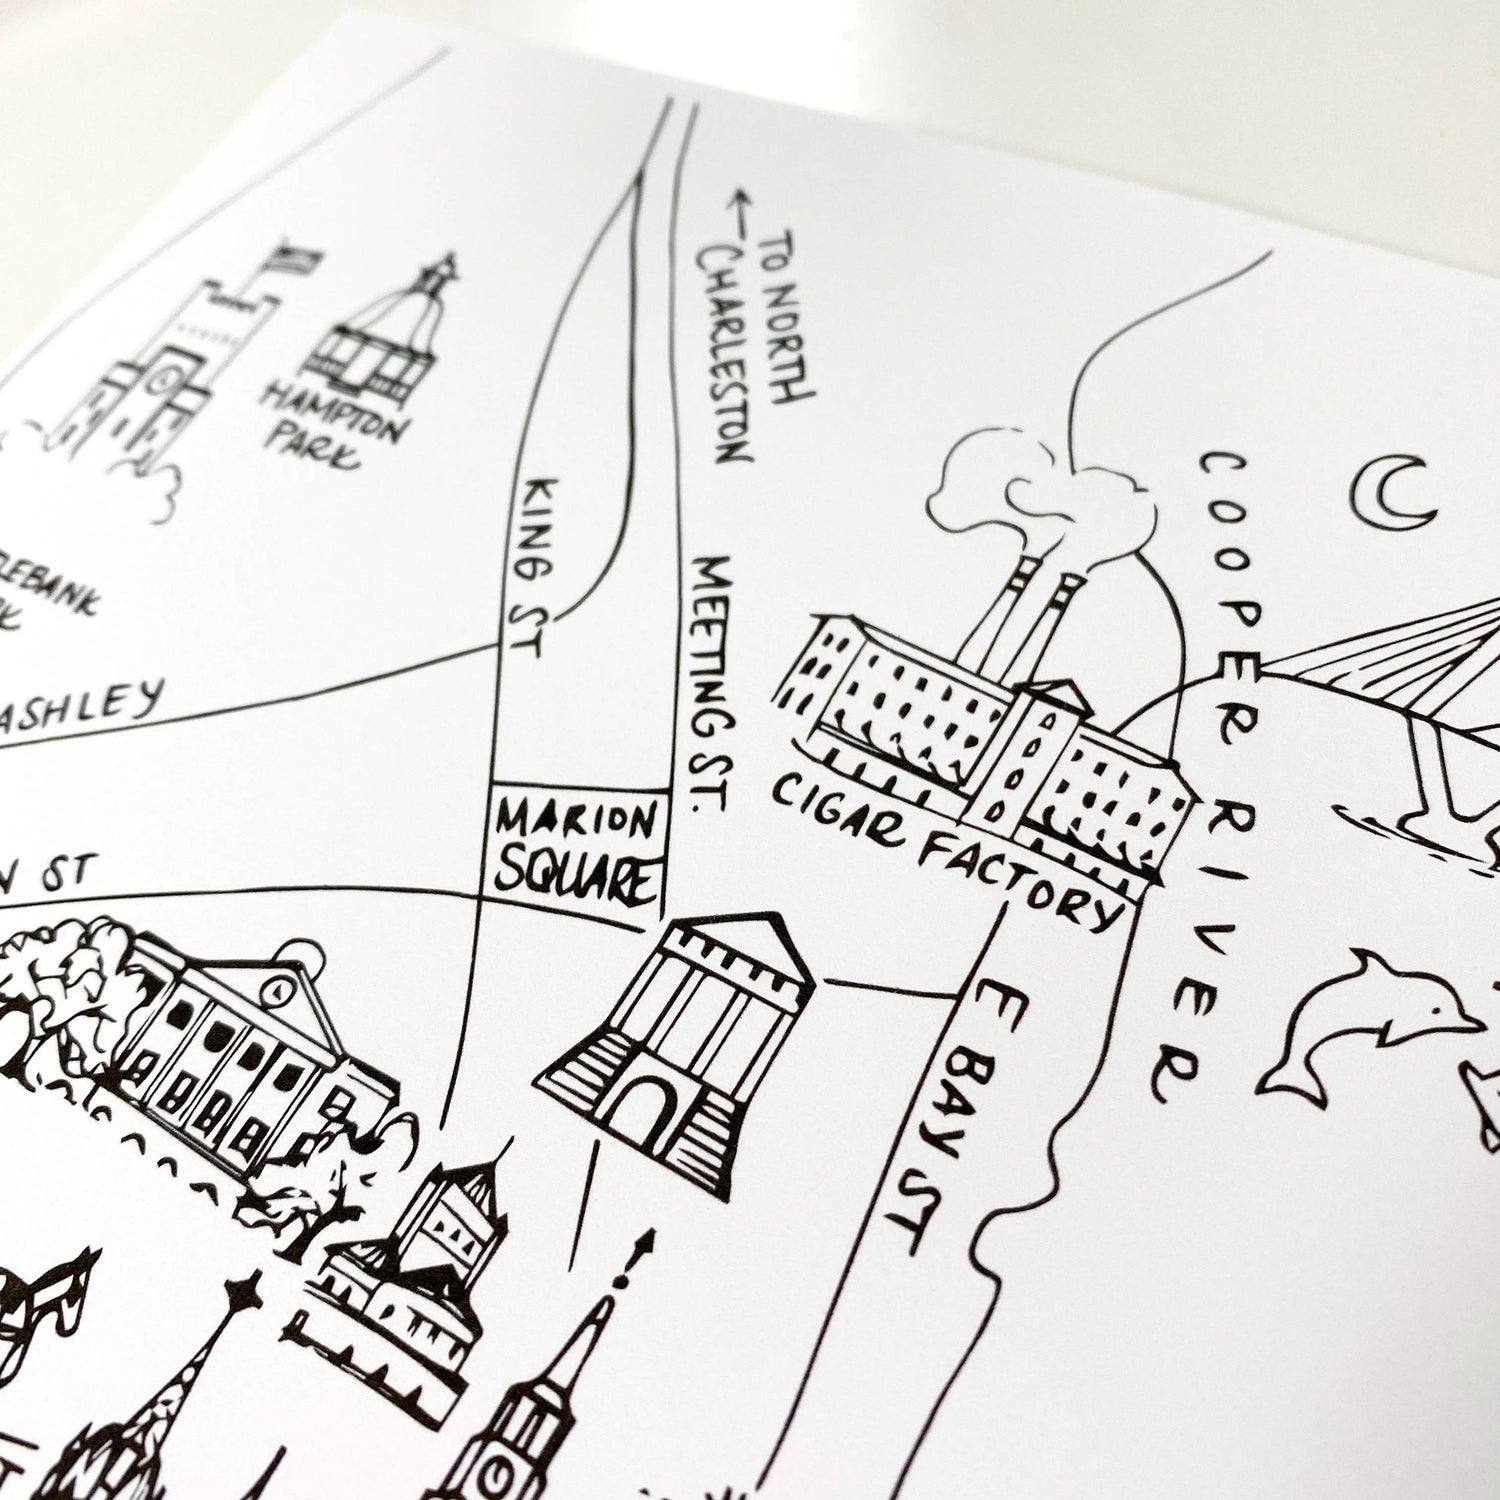 TO NORTH
CHARLESTON
HAMPTON
PARK
COOPER RIVER
KING ST
MEETING ST.
ASHLEY
CIGAR FACTORY
MARION
SQUARE
ST
E BAY ST